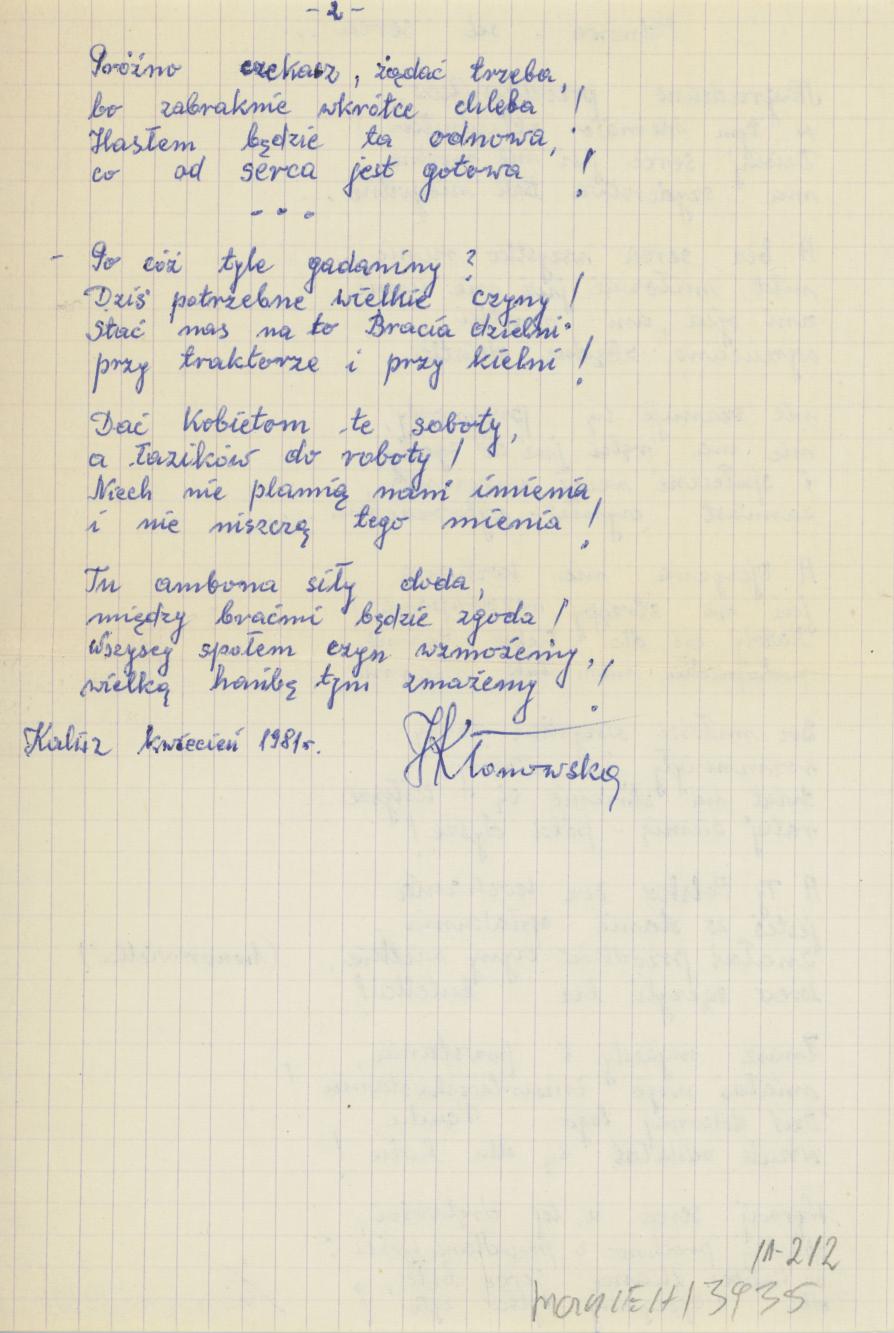 - 2 -
Próżno czekasz, żądać trzeba,
bo zabraknie wkrótce chleba!
Hasłem będzie ta odnowa,
co od serca jest gotowa!
- - -
- Po cóż tyle gadaniny?
Dziś potrzebne wielkie czyny!
Stać nas na to Bracia dzielni
przy traktorze i przy kielni!
Dać Kobietom te soboty,
a łazików do roboty!
Niech nie plamią nam imienia,
i nie niszczą tego mienia!
Tu ambona siły doda,
między braćmi będzie zgoda!
Wszyscy społem czyn wzmożemy,
wielką hańbę tym zmażemy!
Kalisz kwiecień 1981r.
JKłanowska
/1-2/2